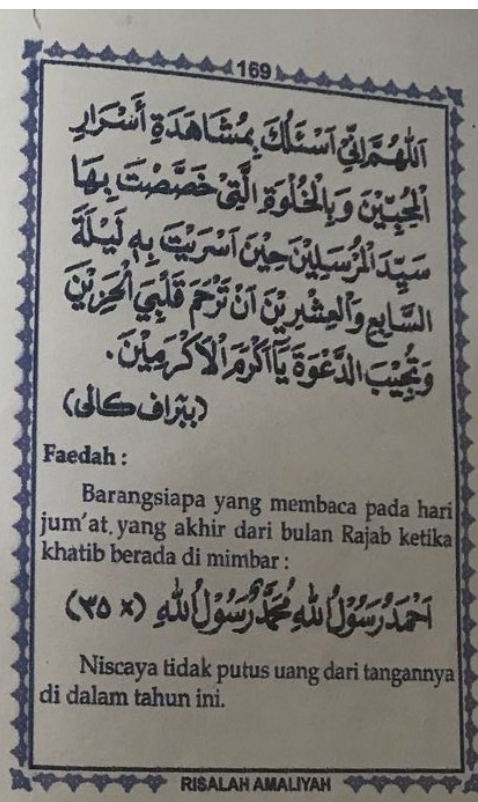 169
اَللّٰهُمَّ اِنِّيْ اَسْئَلُكَ بِمُشَاهَدَةِ أَسْرَارِ
الْمُحِبِّيْنَ وَبِالْخُلْوَةِ الَّتِيْ خَصَّصْتَ بِهَا
سَيِّدَ الْمُرْسَلِيْنَ حِيْنَ اَسْرَيْتَ بِهِ لَيْلَةَ
السَّابِعِ وَالْعِشْرِيْنَ اَنْ تَرْحَمَ قَلْبِيَ الْحَزِيْنَ
وَتُجِيْبَ الدَّعْوَةَ يَآ اَكْرَمَ الْاَكْرَمِيْنَ.
(ببراف كالى)
Faedah :
Barangsiapa yang membaca pada hari
jum'at, yang akhir dari bulan Rajab ketika
khatib berada di mimbar :
اَحْمَدُ رَسُوْلُ اللهِ مُحَمَّدٌ رَسُوْلُ اللهِ (× ٣٥)
Niscaya tidak putus uang dari tangannya
di dalam tahun ini.
RISALAH AMALIYAH